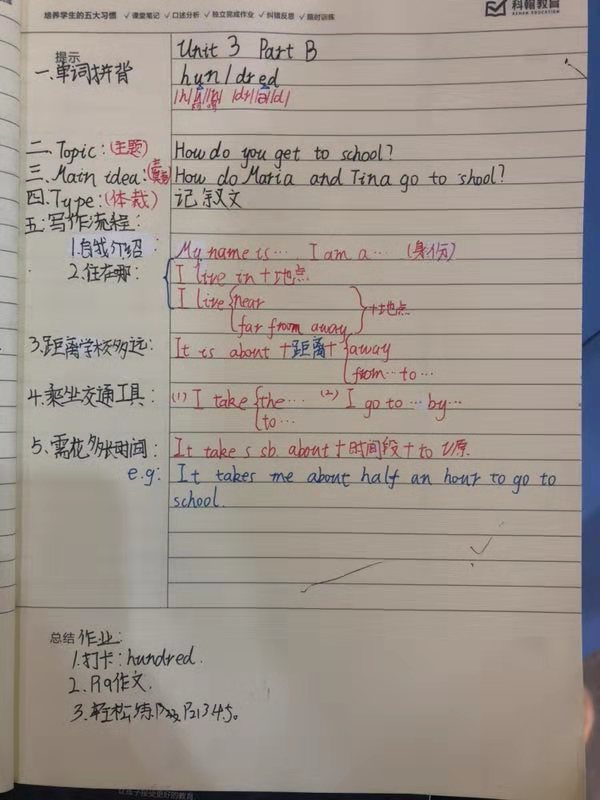 培养学生的五大习惯 ✓课堂笔记 ✓口述分析 ✓独立完成作业 ✓纠错反思 ✓限时训练
科翰教育
KEHAN EDUCATION
提示
Unit 3 Part B
一.单词拼背
hun/dred
二.Topic:(主题) How do you get to school?
三.Main idea: How do Maria and Tina go to shool?
四.Type:(体裁) 记叙文
五:写作流程:
1.自我介绍: My name is… I am a… (身份)
2.住在哪: I live in+地点
I live near
far from away +地点
3.距离学校多远: It is about +距离+ away
from…to…
4.乘坐交通工具: (1) I take the… (2) I go to…by…
to…
5.需花多长时间: It take s sb. about+时间段+to V原.
e.g: It takes me about half an hour to go to
school.
总结 作业:
1.打卡:hundred.
2.P19作文.
3.轻松练
让孩子接受更好的教育